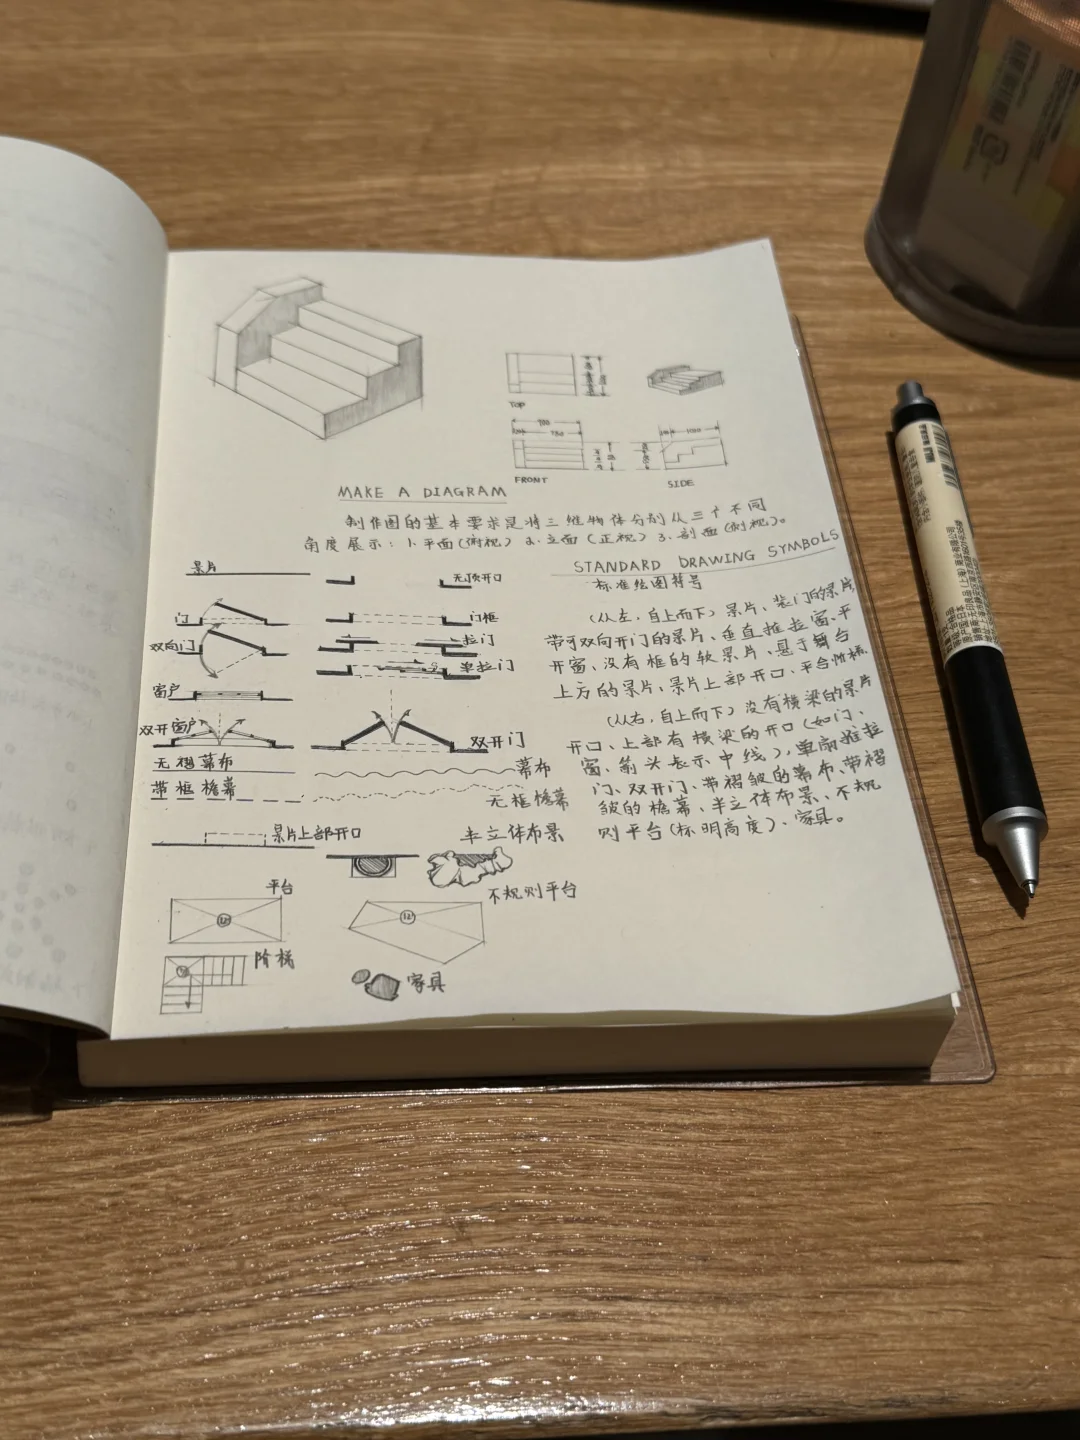 TOP
900
750
FRONT
SIDE
MAKE A DIAGRAM
制作图的基本要求是将三维物体分别从三个不同
角度展示：1.平面(俯视) 2.立面(正视) 3.剖面(侧视)。
STANDARD DRAWING SYMBOLS
标准绘图符号
景片
无顶开口
门
门框
双向门
拉门
单拉门
窗户
双开窗户
双开门
无褶幕布
幕布
带框檐幕
无框檐幕
景片上部开口
半立体布景
平台
不规则平台
阶梯
家具
(从左，自上而下)景片、装门的景片
带可双向开门的景片、垂直推拉窗、平
开窗、没有框的软景片、悬于舞台
上方的景片、景片上部开口、平台阶梯
(从右，自上而下)没有横梁的景片
开口、上部有横梁的开口(如门、
窗、箭头表示中线)，单扇推拉
门、双开门、带褶皱的幕布、带褶
皱的檐幕、半立体布景、不规
则平台(标明高度)、家具。